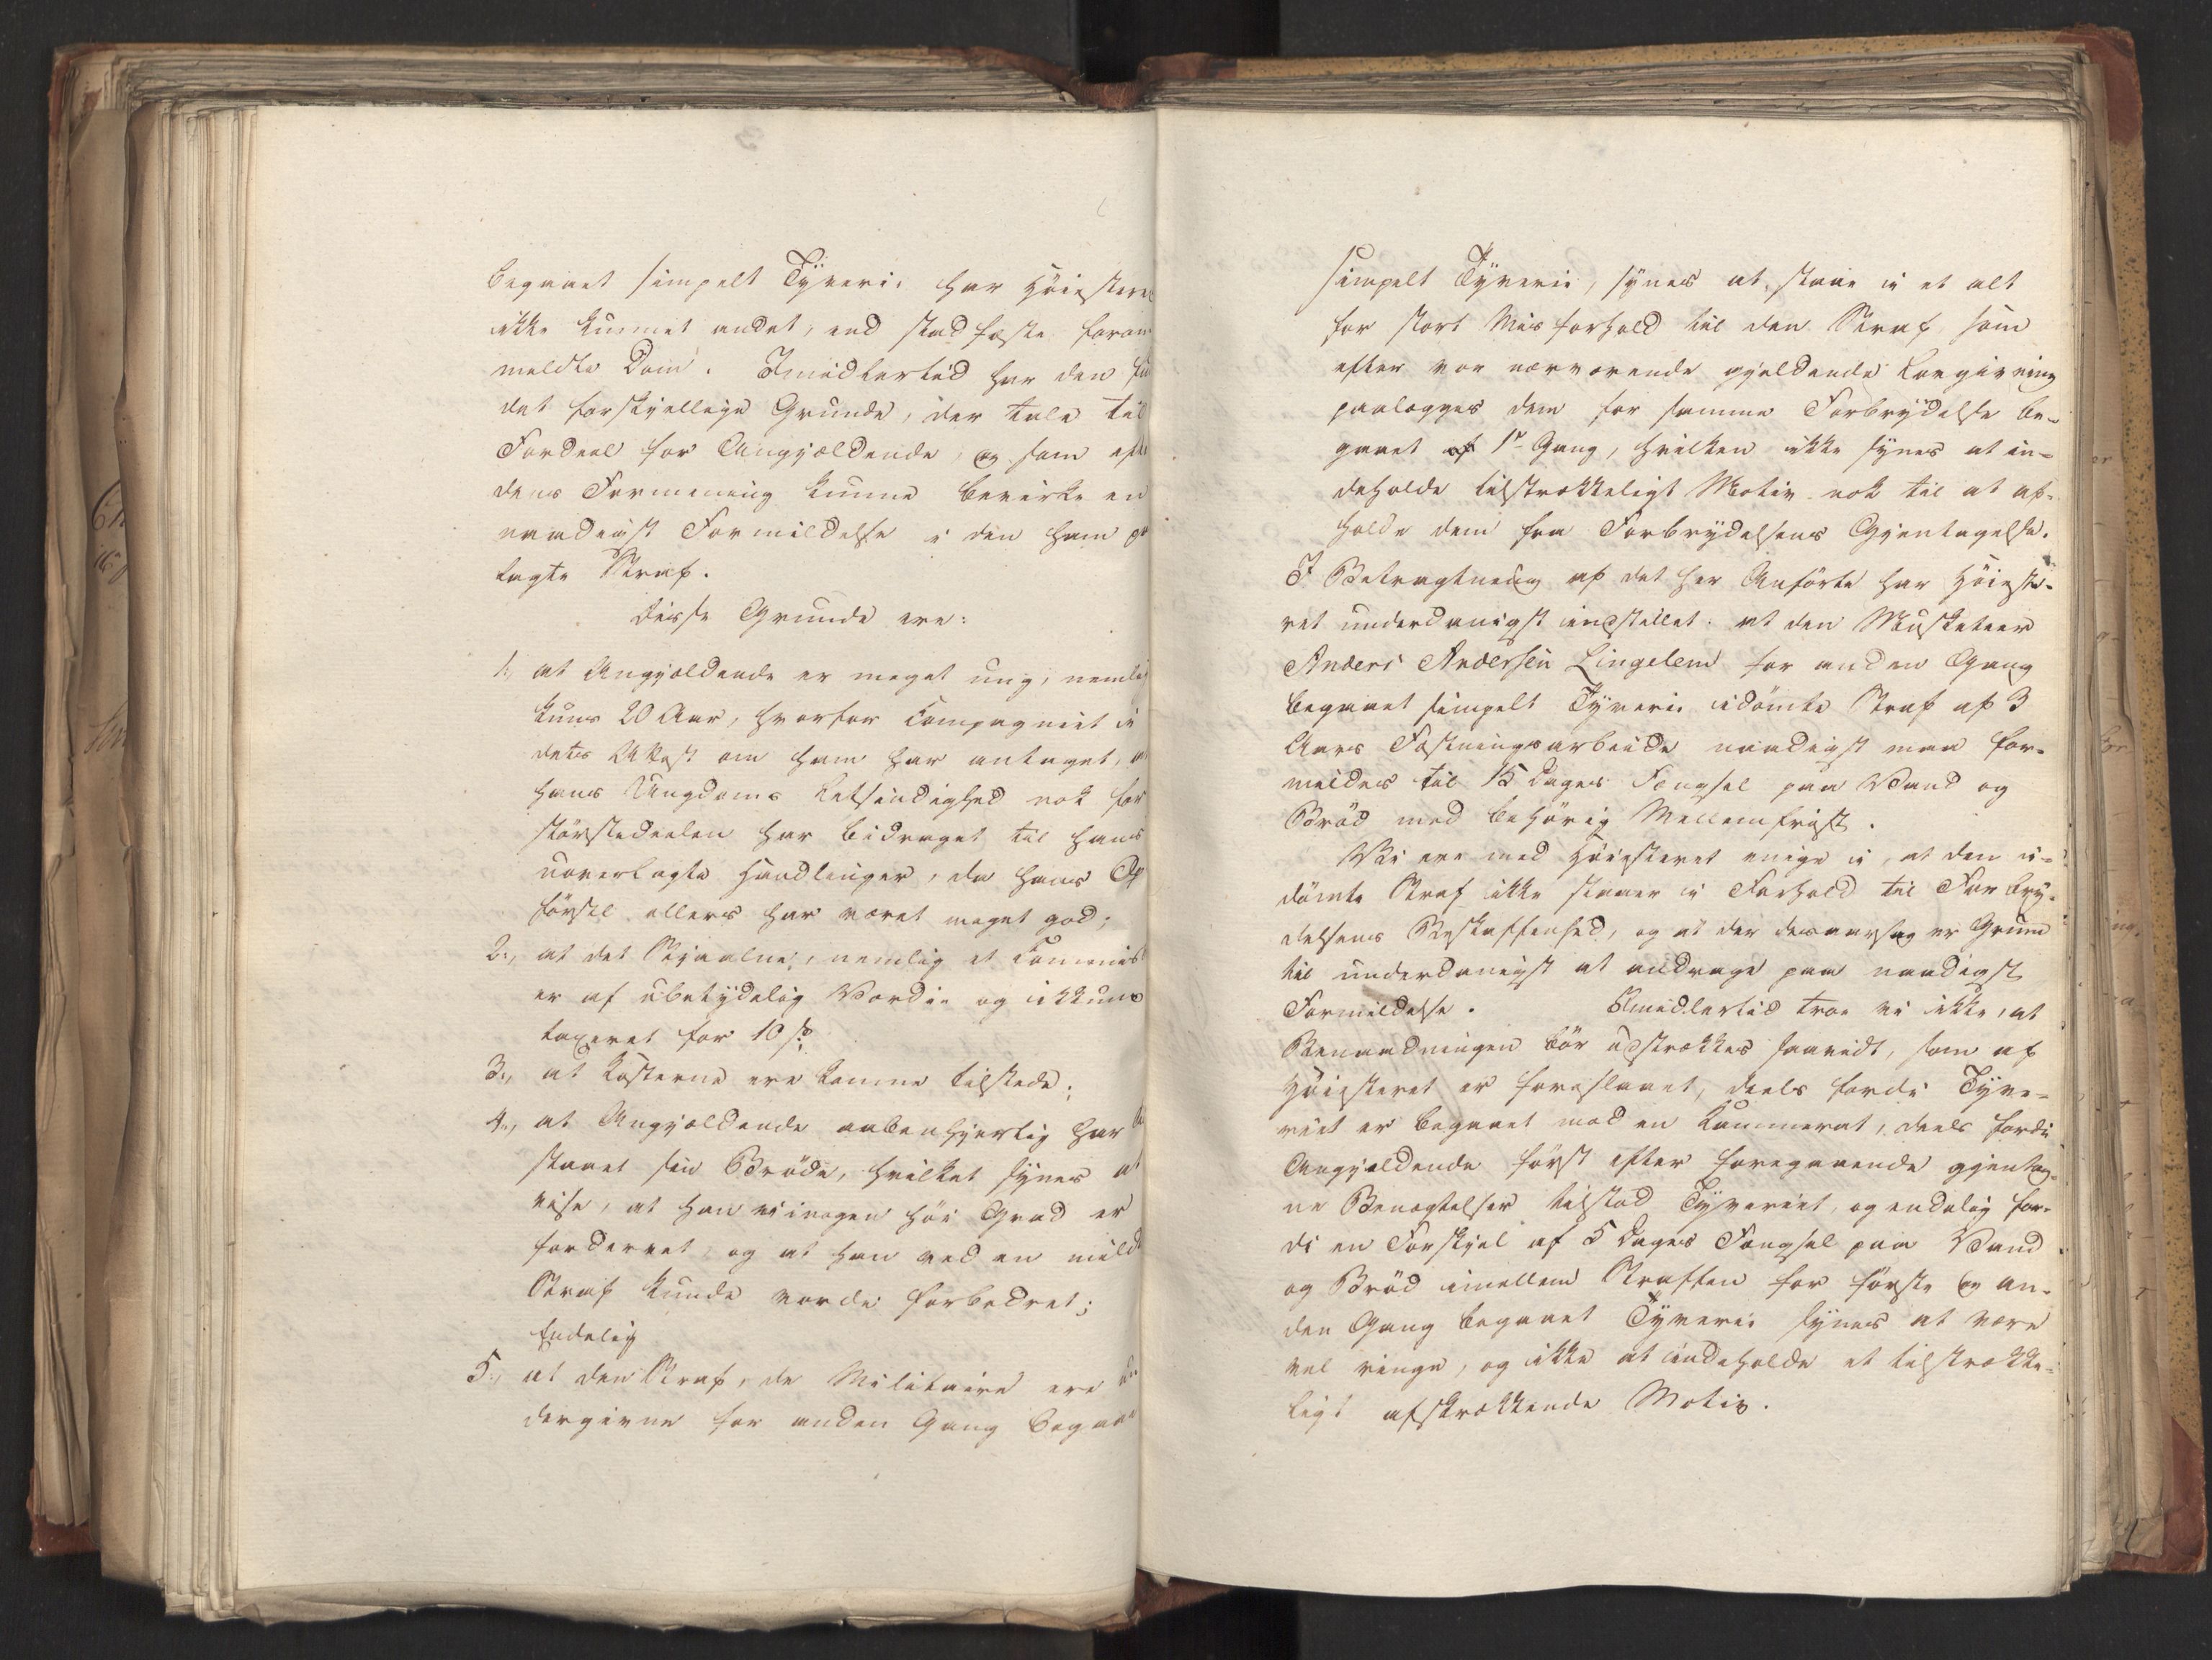 begaaet simpelt Tyveri, har Höiestere
ikke kunnet andet, end stadfæste foran
meldte Dom. Imidlertid har den fun
det forskjellige Grunde, der tale til
Fordeel for Angjældende, og som efter
dens Formening kunne bevirke en
naadigst Formildelse i den ham paa
lagte Straf.
Disse Grunde ere:
1, at Angjældende er meget ung, nemlig
kuns 20 Aar, hvorfor Compagniet i
dets Attest om ham har antaget, at
hans Ungdoms Letsindighed nok for
störstedeelen har bidraget til hans
uoverlagte Handlinger, da hans Op
försel ellers har været meget god;
2, at det Stjaalne, nemlig et
er af ubetydelig Værdie og ikkuns
taxeret for 10 s;
3, at Kosterne ere komne tilstede;
4, at Angjældende aabenhjertig har be
staaet sin Bröde, hvilket synes at
vise, at han ei i nogen höi Grad er
fordervet, og at han ved en mild
Straf kunde vorde forbedret;
Endelig
5, at den Straf, de Militaire ere un
dergivne for anden Gang begaaet
simpelt Tyverie, synes at staae i et alt
for stort Misforhold til den Straf som
efter vor nærværende gjeldende Lovgivning
paalægges dem for samme Forbrydelse be-
gaaet af 1ste Gang, hvilken ikke synes at in-
deholde tilstrækkeligt Motiv nok til at af-
holde dem fra Forbrydelsens Gjentagelse.
I Betragtning af det her Anförte har Höieste-
ret underdanigst indstillet: at den Musketeer
Anders Andersen Lingelem for anden Gang
begaaet simpelt Tyveri idömte Straf af 3
Aars Fæstningsarbeide naadigst maa for-
mildes til 15 Dages Fængsel paa Vand og
Bröd med behörig Mellemfrist.
Vi ere med Höiesteret enige i, at den i-
dömte Straf ikke staaer i Forhold til Forbry-
delsens Beskaffenhed, og at der desaarsag er Grund
til underdanigst at andrage paa naadigst
Formildelse. Imidlertid troe vi ikke, at
Benaadningen bör udstrækkes saavidt, som af
Höiesteret er foreslaaet, deels fordi Tyve-
riet er begaaet mod en Kammerat, deels fordi
Angjældende först efter foregaaende gjentag-
ne Benægtelser tilstod Tyveriet, og endelig for-
di en Forskjel af 5 Dages Fængsel paa Vand
og Bröd imellem Straffen for förste og an-
den Gang begaaet Tyveri synes at være
vel ringe, og ikke at indeholde et tilstrække-
ligt afskrækkende Motiv.